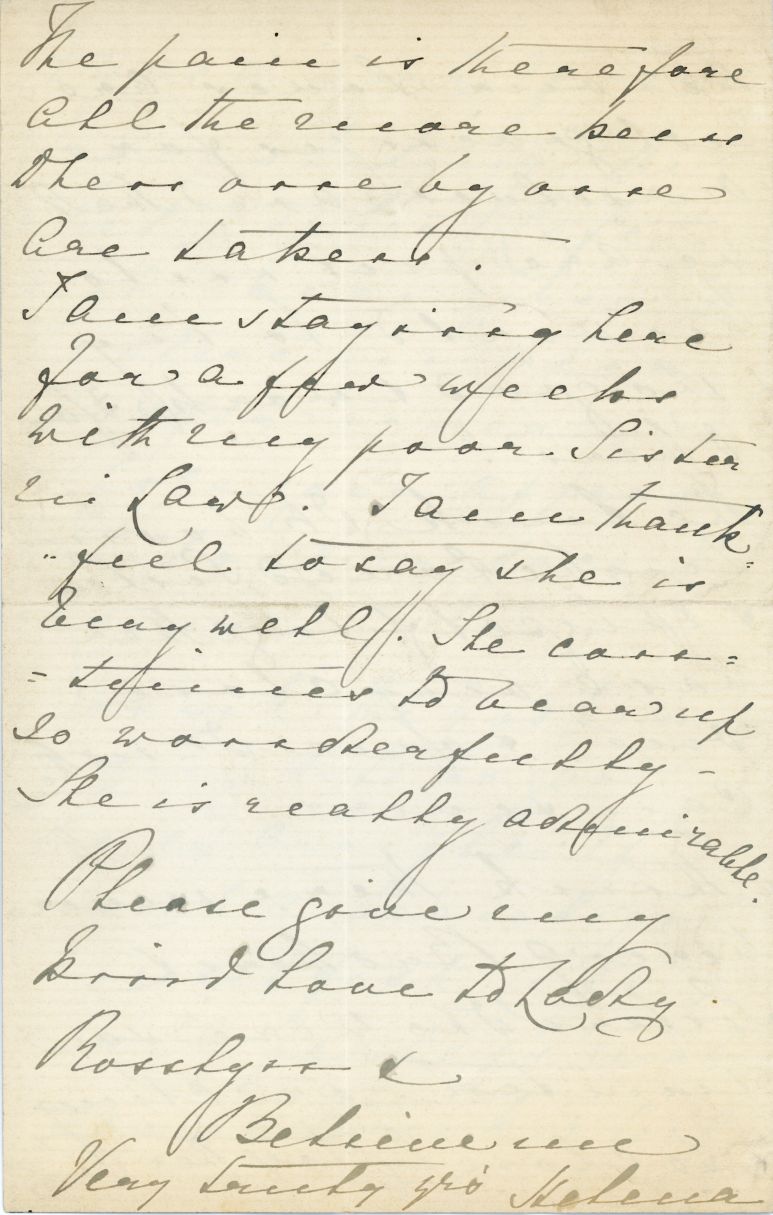 The pain is therefore
all the more keen
when one by one
are taken.
I am staying here
for a few weeks
with my poor Sister
in Law. I am thank=
=ful to say she is
very well. She con=
=tinues to bear up
so wonderfully -
She is really admirable.
Please give my
kind love to Lady
Rosslyn &
Believe me
Very truly yrs Helena